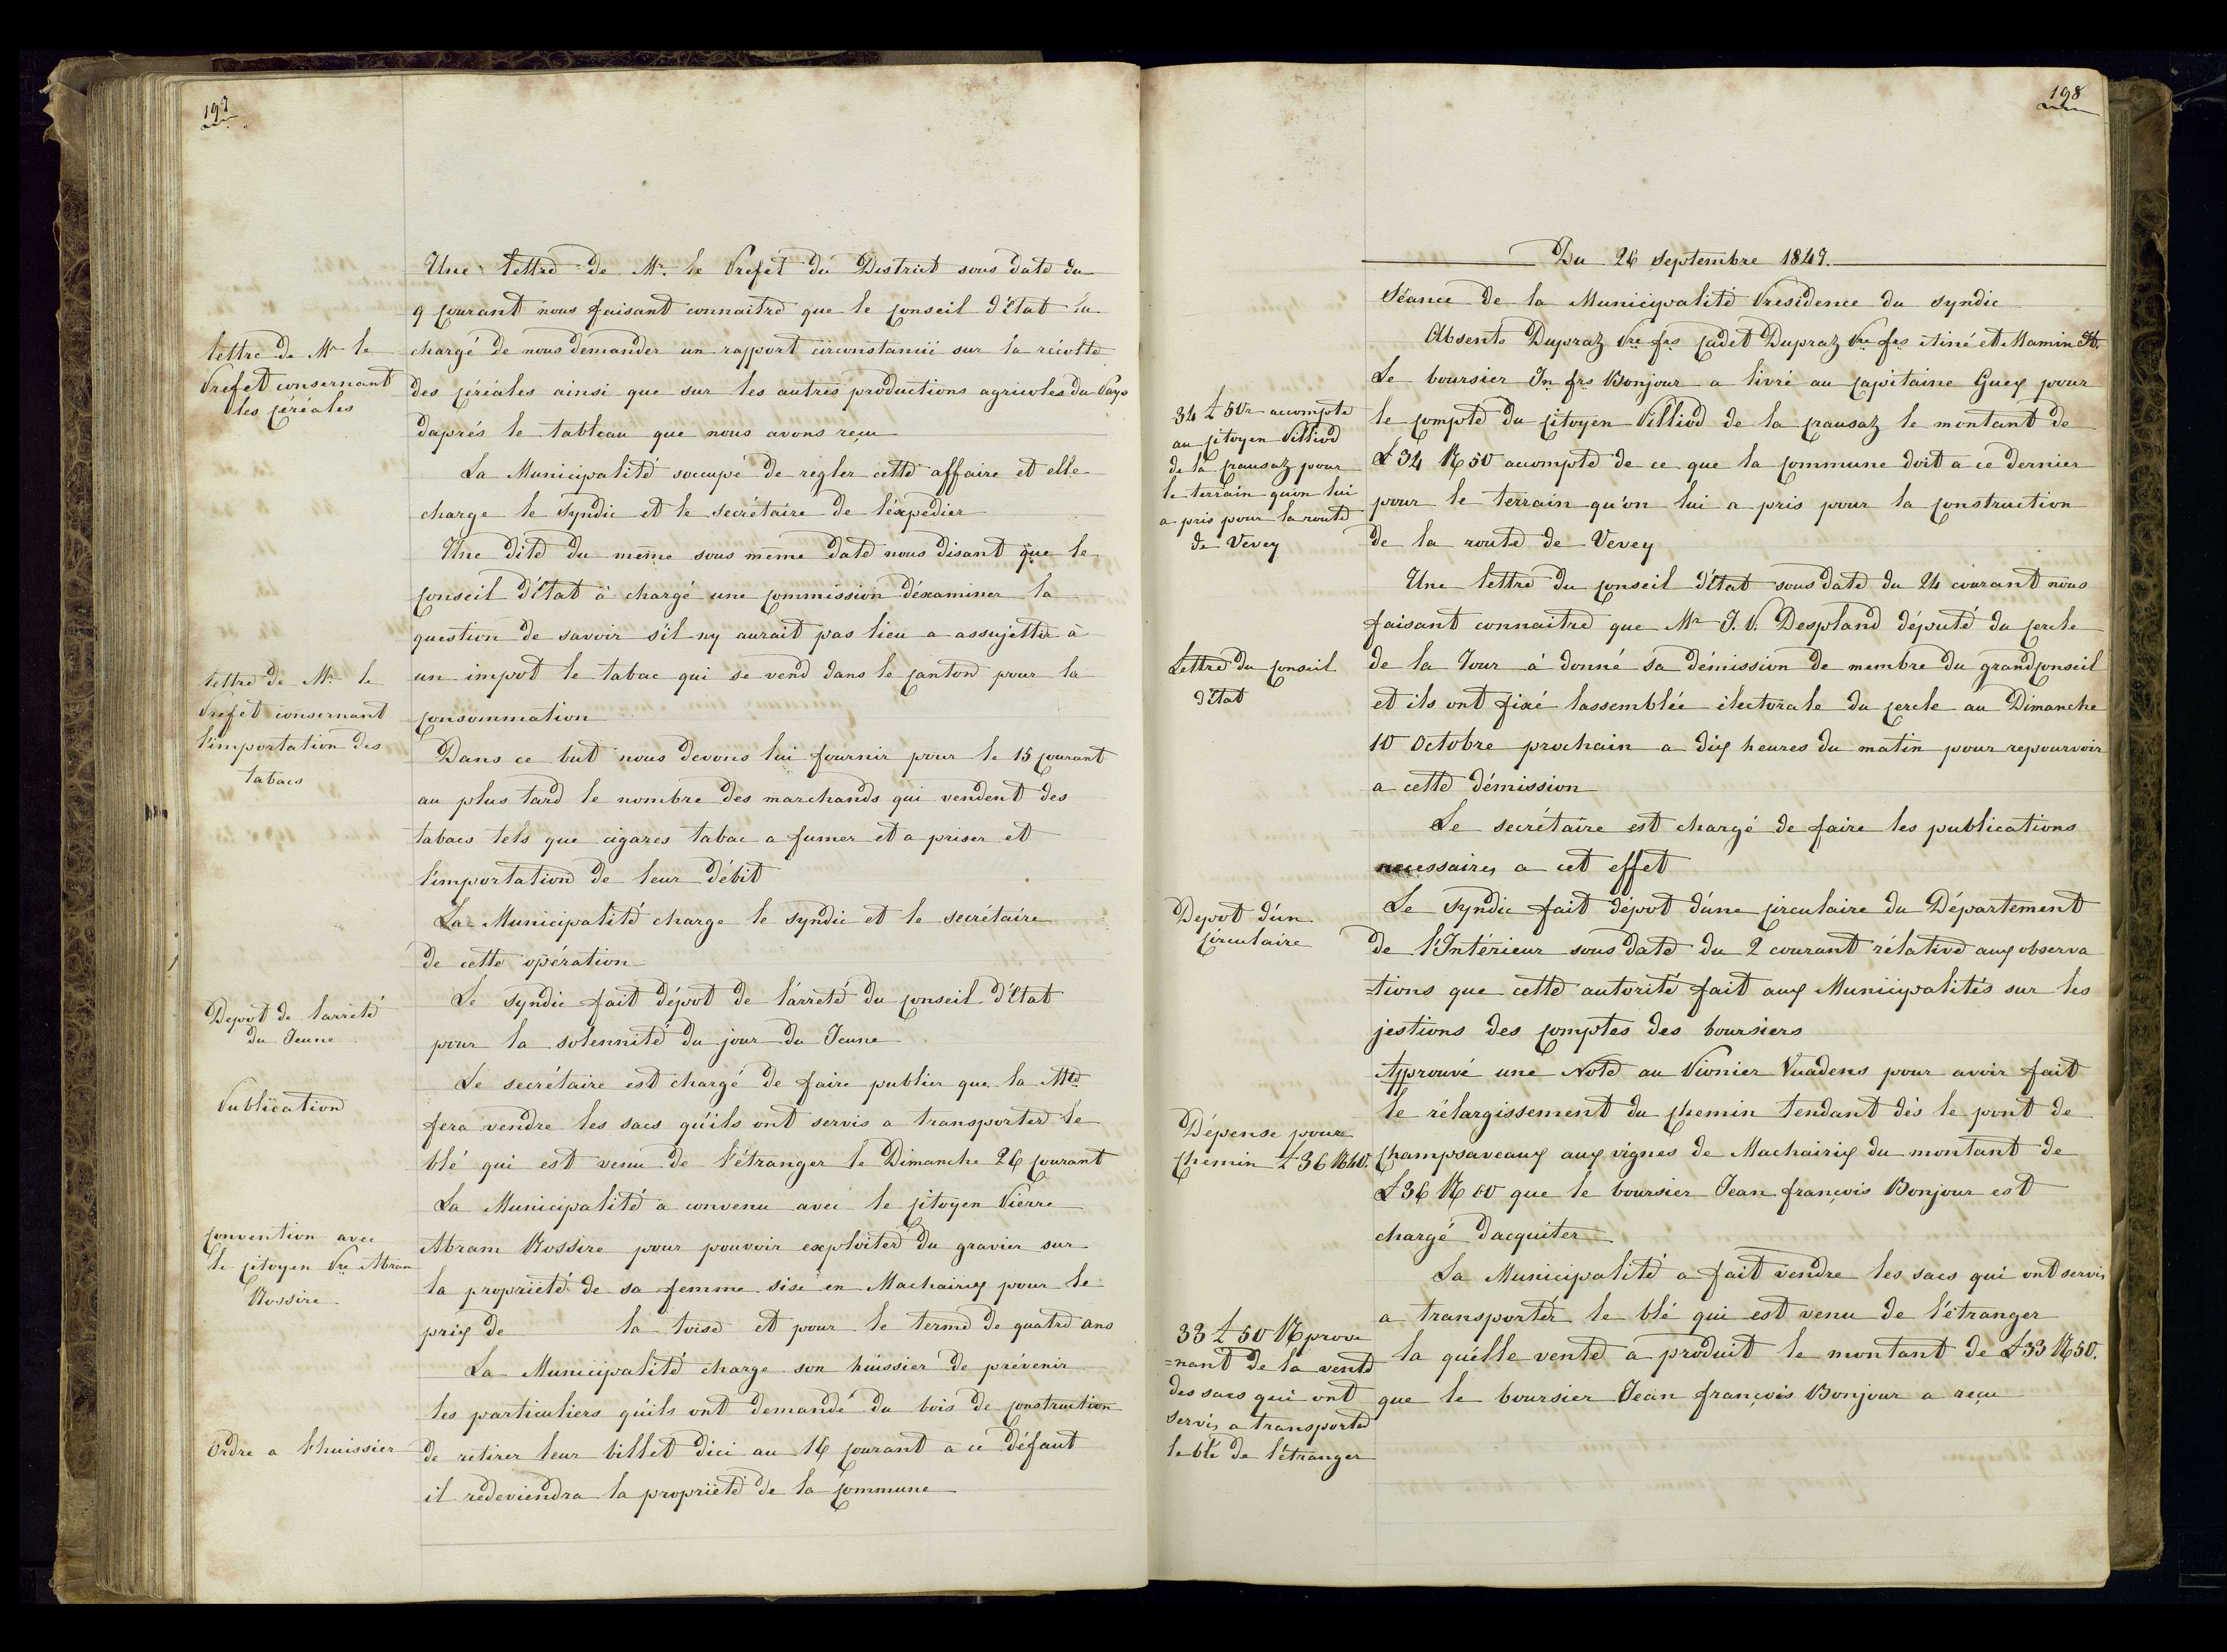 197
Une lettre de Mr. le Prefet du District sous date du
9 courant nous faisant connaitre que le Conseil d'État la
lettre de Mr le
Prefet consernant
les céréales
chargé de nous demander un rapport circonstancié sur la récolte
des céréales ainsi que sur les autres productions agricoles du Pays
daprés le tableau que nous avons reçu
La Municipalité soccupe de regler cette affaire et elle
charge le Syndic et le secrétaire de l'éxpedier
Une dite du même sous même date nous disant que le
Conseil d'État à chargé une Commission d'éxaminer la
question de savoir s'il ny aurait pas lieu a assujettir à
lettre de Mr. le
Prefet consernant
l'importation des
tabacs
un impot le tabac qui se vend dans le Canton pour la
Consommation
Dans ce but nous devons lui fournir pour le 15 Courant
au plus tard le nombre des marchands qui vendent des
tabacs tels que cigares tabac a fumer et a priser et
l'importation de leur débit
La Municipalité charge le Syndic et le secrétaire
de cette opération
Depot de larrété
du Jeune
Le Syndic fait dépot de l'arreté du Conseil d'État
pour la solennité du jour du Jeune
Publication
Le secrétaire est chargé de faire publier que la Mté
fera vendre les sacs qu'ils ont servis a transporter le
blé qui est venu de l'étranger le Dimanche 26 Courant
Convention avec
le Citoyen Pre Abram
Rossire
La Municipalité a convenu avec le Citoyen Pierre
Abram Rossire pour pouvoir exploiter du gravier sur
la propriété de sa femme sise en Machairix pour le
prix de la toise et pour le terme de quatre ans
La Municipalité charge son huissier de prévenir
les particuliers qu'ils ont demandé du bois de Construction
Ordre a l'huissier
de retirer leur billet dici au 16 Courant a ce défaut
il redeviendra la propriété de la Commune
198
Du 26 Septembre 1847.
Séance de la Municipalité Presidence du Syndic
Absents Dupraz Pre fçs Cadet Dupraz Pre fçs et Mamin
Le boursier Jn frs Bonjour a livré au Capitaine Guex pour
34 £ 50 r acompte
au Citoyen Villiod
de la Crausaz pour
le terrain qu'on lui
a pris pour la route
de Vevey
le Compte du Citoyen Villiod de la Crausaz le montant de
£ 34 R 50 acompte de ce que la Commune doit a ce dernier
pour le terrain qu'on lui a pris pour la Construction
de la route de Vevey
Une lettre du Conseil d'État sous date du 24 courant nous
faisant connaitre que Mr J. P. Despland député du Cercle
Lettre du Conseil
d'État
de la Tour à donné sa démission de membre du grand Conseil
et ils ont fixé lassemblée électorale du Cercle au Dimanche
10 Octobre prochain a dix heures du matin pour repourvoir
a cette démission
Le secrétaire est chargé de faire les publications
necessaires a cet effet
Depot d'un
Circulaire
Le Syndic fait dépot d'une Circulaire du Département
de l'Intérieur sous date du 2 courant rélative aux observa
=tions que cette autorité fait aux Municipalités sur les
jestions des Comptes des boursiers
Approuvé une Note au Pionier Vuadens pour avoir fait
Dépense pour
Chemin £ 36 R 60.
le rélargissement du Chemin tendant dés le pont de
Champsaveaux aux vignes de Machairix du montant de
£ 36 R 60 que le boursier Jean françois Bonjour est
chargé d'acquiter
La Municipalité a fait vendre les sacs qui ont servis
33 £ 50 R prove
=nant de la vente
des sacs qui ont
servis a transporter
le blé de l'étranger
a transporter le blé qui est venu de l'étranger
la qu'élle vente a produit le montant de £ 33 R 50.
que le boursier Jean françois Bonjour a reçu